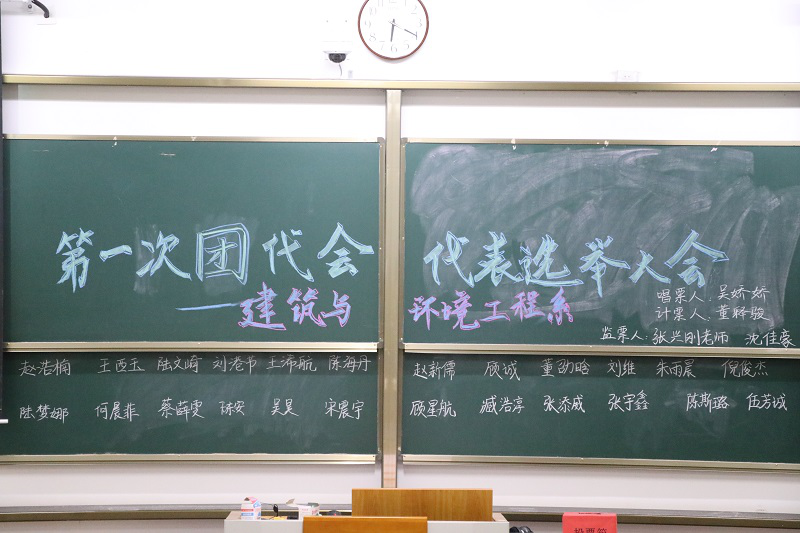 第一次团代会 代表选举大会
——建筑与 环境工程系
唱票人:吴娇娇
计票人:董释骏
监票人:张兴刚老师 沈佳豪
赵浩楠 王西玉 陆文崎 刘港节 王沛航 陈海丹 赵新儒 顾诚 董劭晗 刘维 朱雨晨 倪俊杰
陆梦娜 何晨菲 蔡薛雯 陈安 吴昊 宋震宇 顾星航 臧浩淳 张添威 张宇鑫 陈斯璐 伍芳诚
投票箱